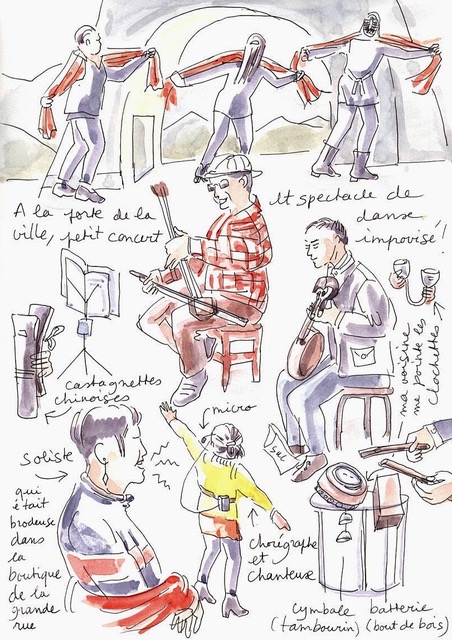 A la porte de la
ville, petit concert
et spectacle de
danse
improvisé !
castagnettes
chinoises
ma voisine
me pointe les
clochettes
micro
soliste
qui
était
brodeuse
dans
la
boutique
de la
grande
rue
Chorégraphe
et
chanteuse
cymbale
(tambourin)
batterie
(bout de bois)